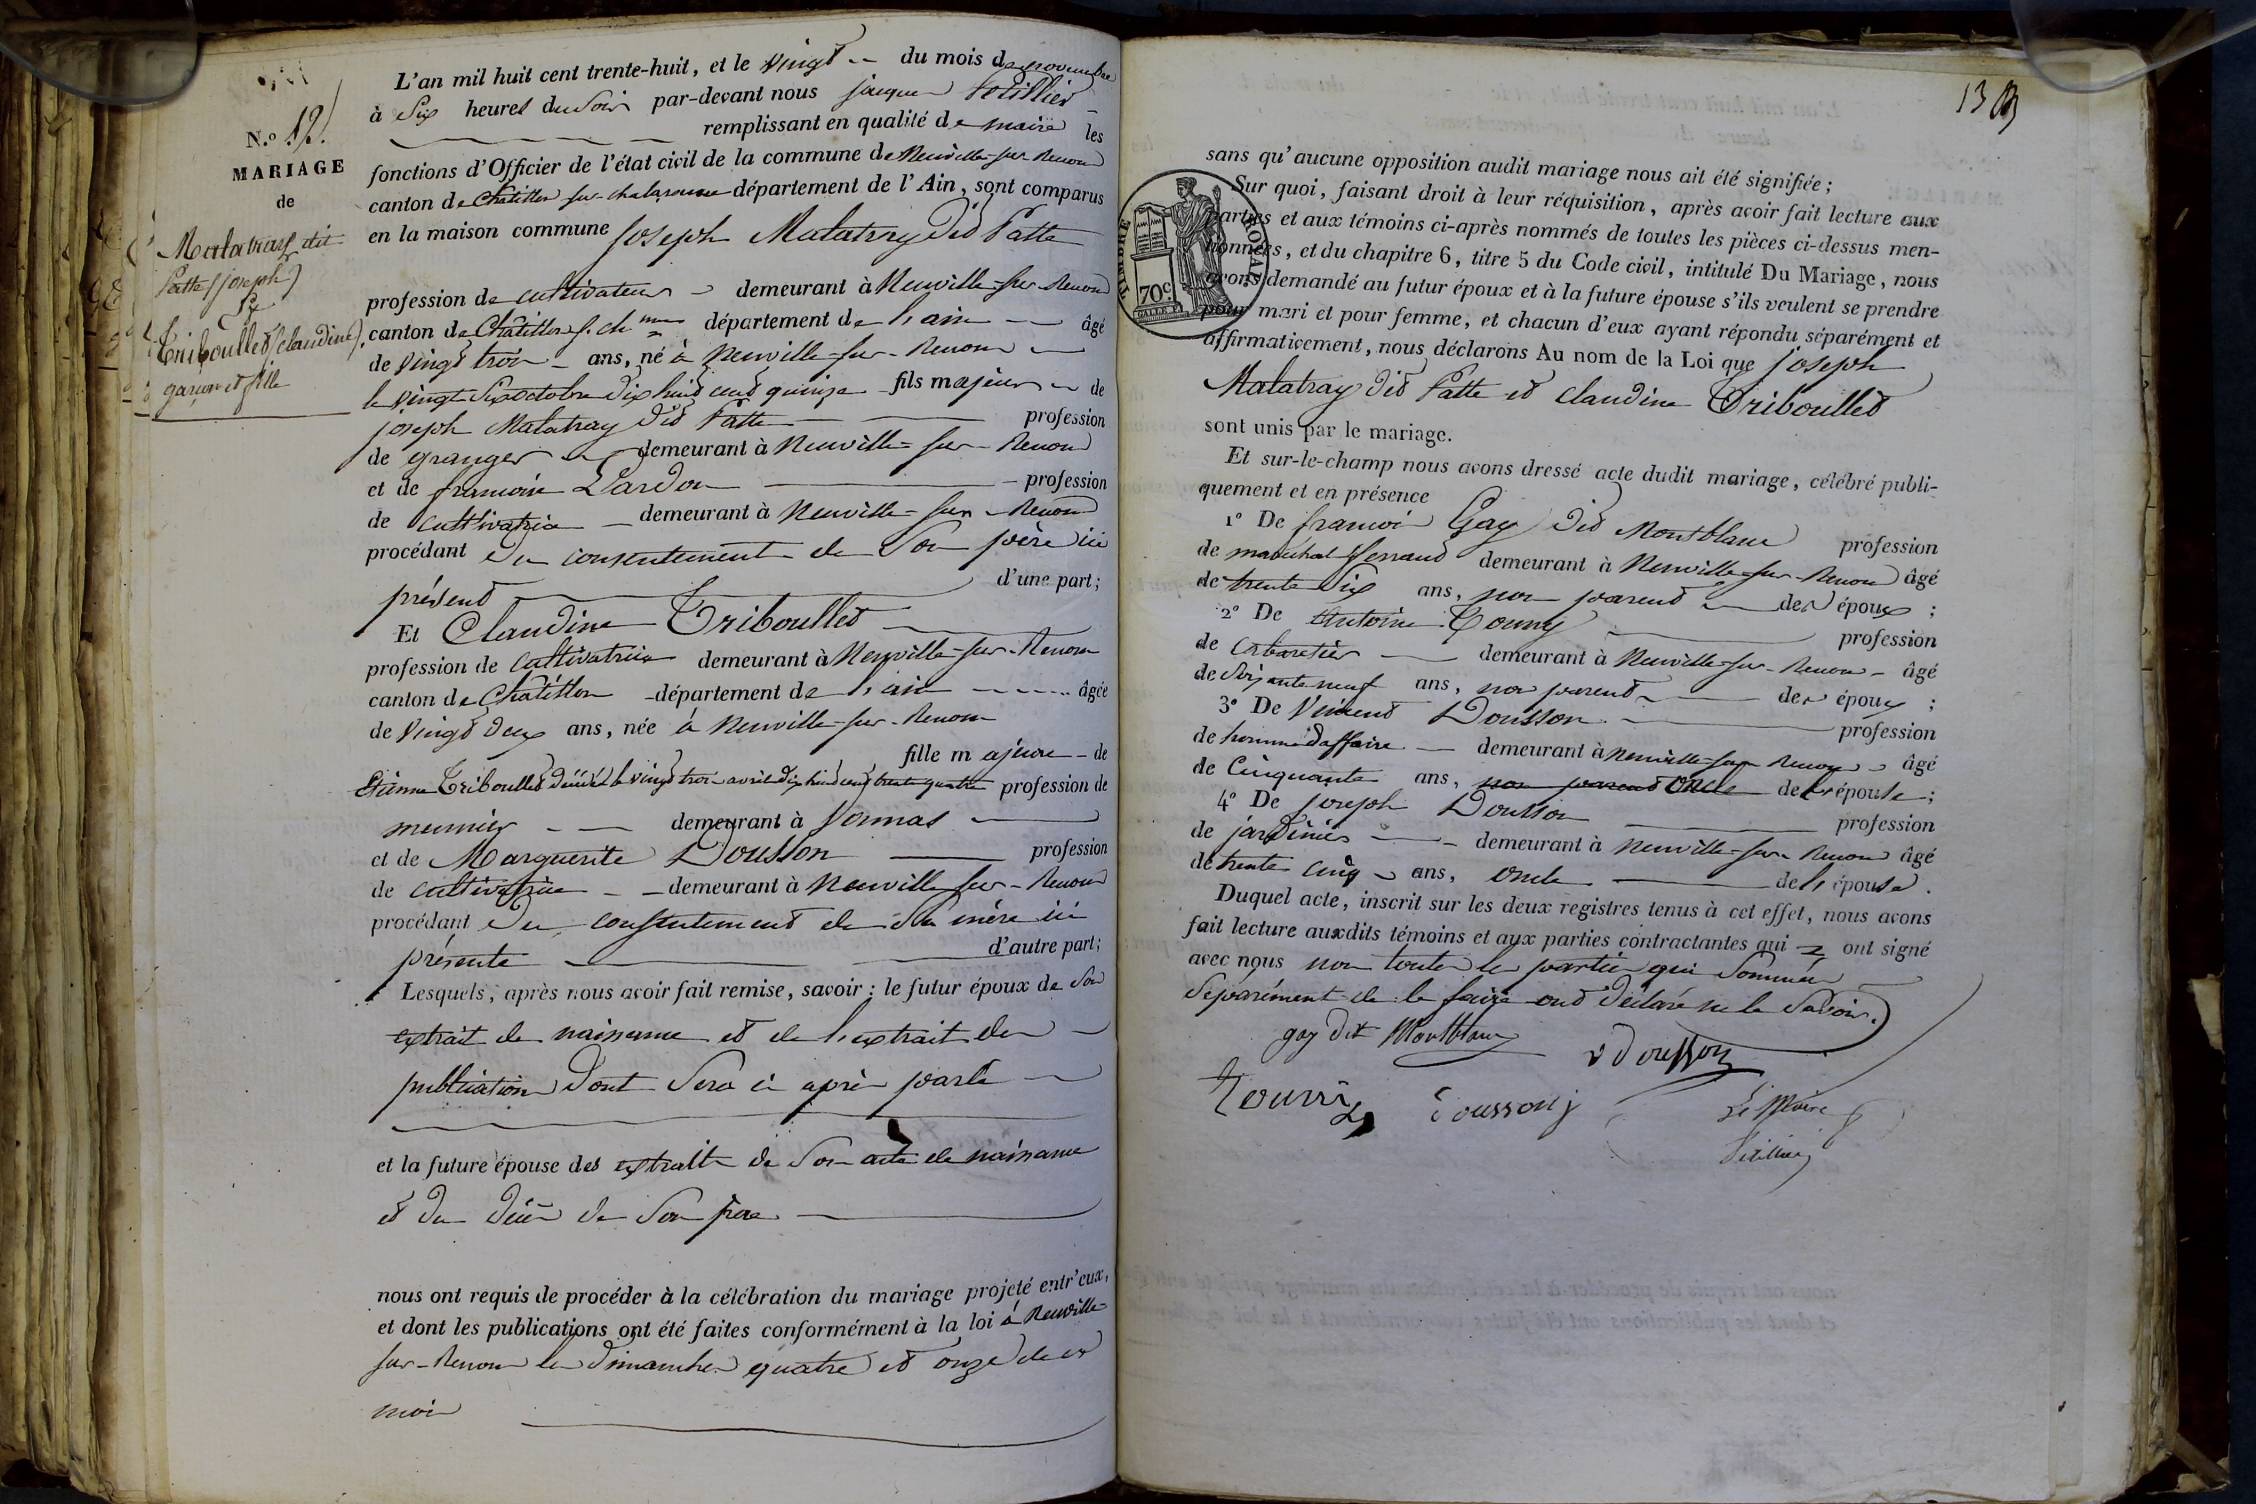 N.° 12.
MARIAGE
de
Malatray dit
Patte (joseph)
Et
Triboullet (claudine).
garçon et fille
L'an mil huit cent trente-huit, et le vingt du mois de novembre
à Six heures du Soir par-devant nous jacques
remplissant en qualité de maire les
fonctions d'Officier de l'état civil de la commune de Neuville-sur-Renom
canton de Chatillon sur-chalaronne département de l'Ain, sont comparus
en la maison commune Joseph Malatray dit Patte
profession de cultivateur demeurant à Neuville-sur-Renom
canton de Chatillon s. ch.nne département de l'ain âgé
de vingt trois ans, né à Neuville-sur-Renom
le vingt Six octobre dix huit cent quinze fils majeur de
joseph Malatray dit Patte profession
de granger demeurant à Neuville-sur-Renom
et de francoise Lardon profession
de cultivatrice demeurant à Neuville-sur-Renom
procédant du consentement de Son père ici
présent d'une part;
Et Claudine Triboullet
profession de cultivatrice demeurant à Neuville-sur-Renom
canton de Chatillon département de l'ain âgée
de vingt deux ans, née à Neuville-sur-Renom
fille majeure de
Etienne Triboullet décédé le vingt trois avril dix huit cent trente quatre profession de
meunier demeurant à Sonnas
et de Marguerite Dousson profession
de cultivatrice demeurant à Neuville-sur-Renom
procédant du consentement de Sa mère ici
présente d'autre part;
Lesquels, après nous avoir fait remise, savoir: le futur époux de Son
extrait de naissance et de l'extrait des
publications dont Sera ci après parlé
et la future épouse des extraits de Son acte de naissance
et du décès de Son père
nous ont requis de procéder à la célébration du mariage projeté entr'eux,
et dont les publications ont été faites conformément à la loi à Neuville-
sur-Renom les dimanches quatre et onze de ce
mois
13
TIMBRE ROYAL
70c
sans qu'aucune opposition audit mariage nous ait été signifiée;
Sur quoi, faisant droit à leur réquisition, après avoir fait lecture aux
parties et aux témoins ci-après nommés de toutes les pièces ci-dessus men-
tionnées, et du chapitre 6, titre 5 du Code civil, intitulé Du Mariage, nous
avons demandé au futur époux et à la future épouse s'ils veulent se prendre
pour mari et pour femme, et chacun d'eux ayant répondu séparément et
affirmativement, nous déclarons Au nom de la Loi que joseph
Malatray dit Patte et Claudine Triboullet
sont unis par le mariage.
Et sur-le-champ nous avons dressé acte dudit mariage, célébré publi-
quement et en présence
1° De francois Gay dit Montblanc profession
de maréchal ferrand demeurant à Neuville-sur-Renom âgé
de trente Six ans, non parent des époux;
2° De Antoine profession
de Cabaretier demeurant à Neuville-sur-Renom âgé
de Soixante neuf ans, non parent des époux;
3° De Vincent Dousson profession
de homme d'affaire demeurant à Neuville-sur-Renom âgé
de Cinquante ans, non parent oncle de l'épouse;
4° De joseph Dousson profession
de jardinier demeurant à Neuville-sur-Renom âgé
de trente cinq ans, oncle de l'épouse.
Duquel acte, inscrit sur les deux registres tenus à cet effet, nous avons
fait lecture auxdits témoins et aux parties contractantes qui ont signé
avec nous non toutes les parties qui Sommées
Séparément de le faire ont déclaré ne le Savoir.
gay dit Montblanc
v Dousson
Dousson j
Le Maire